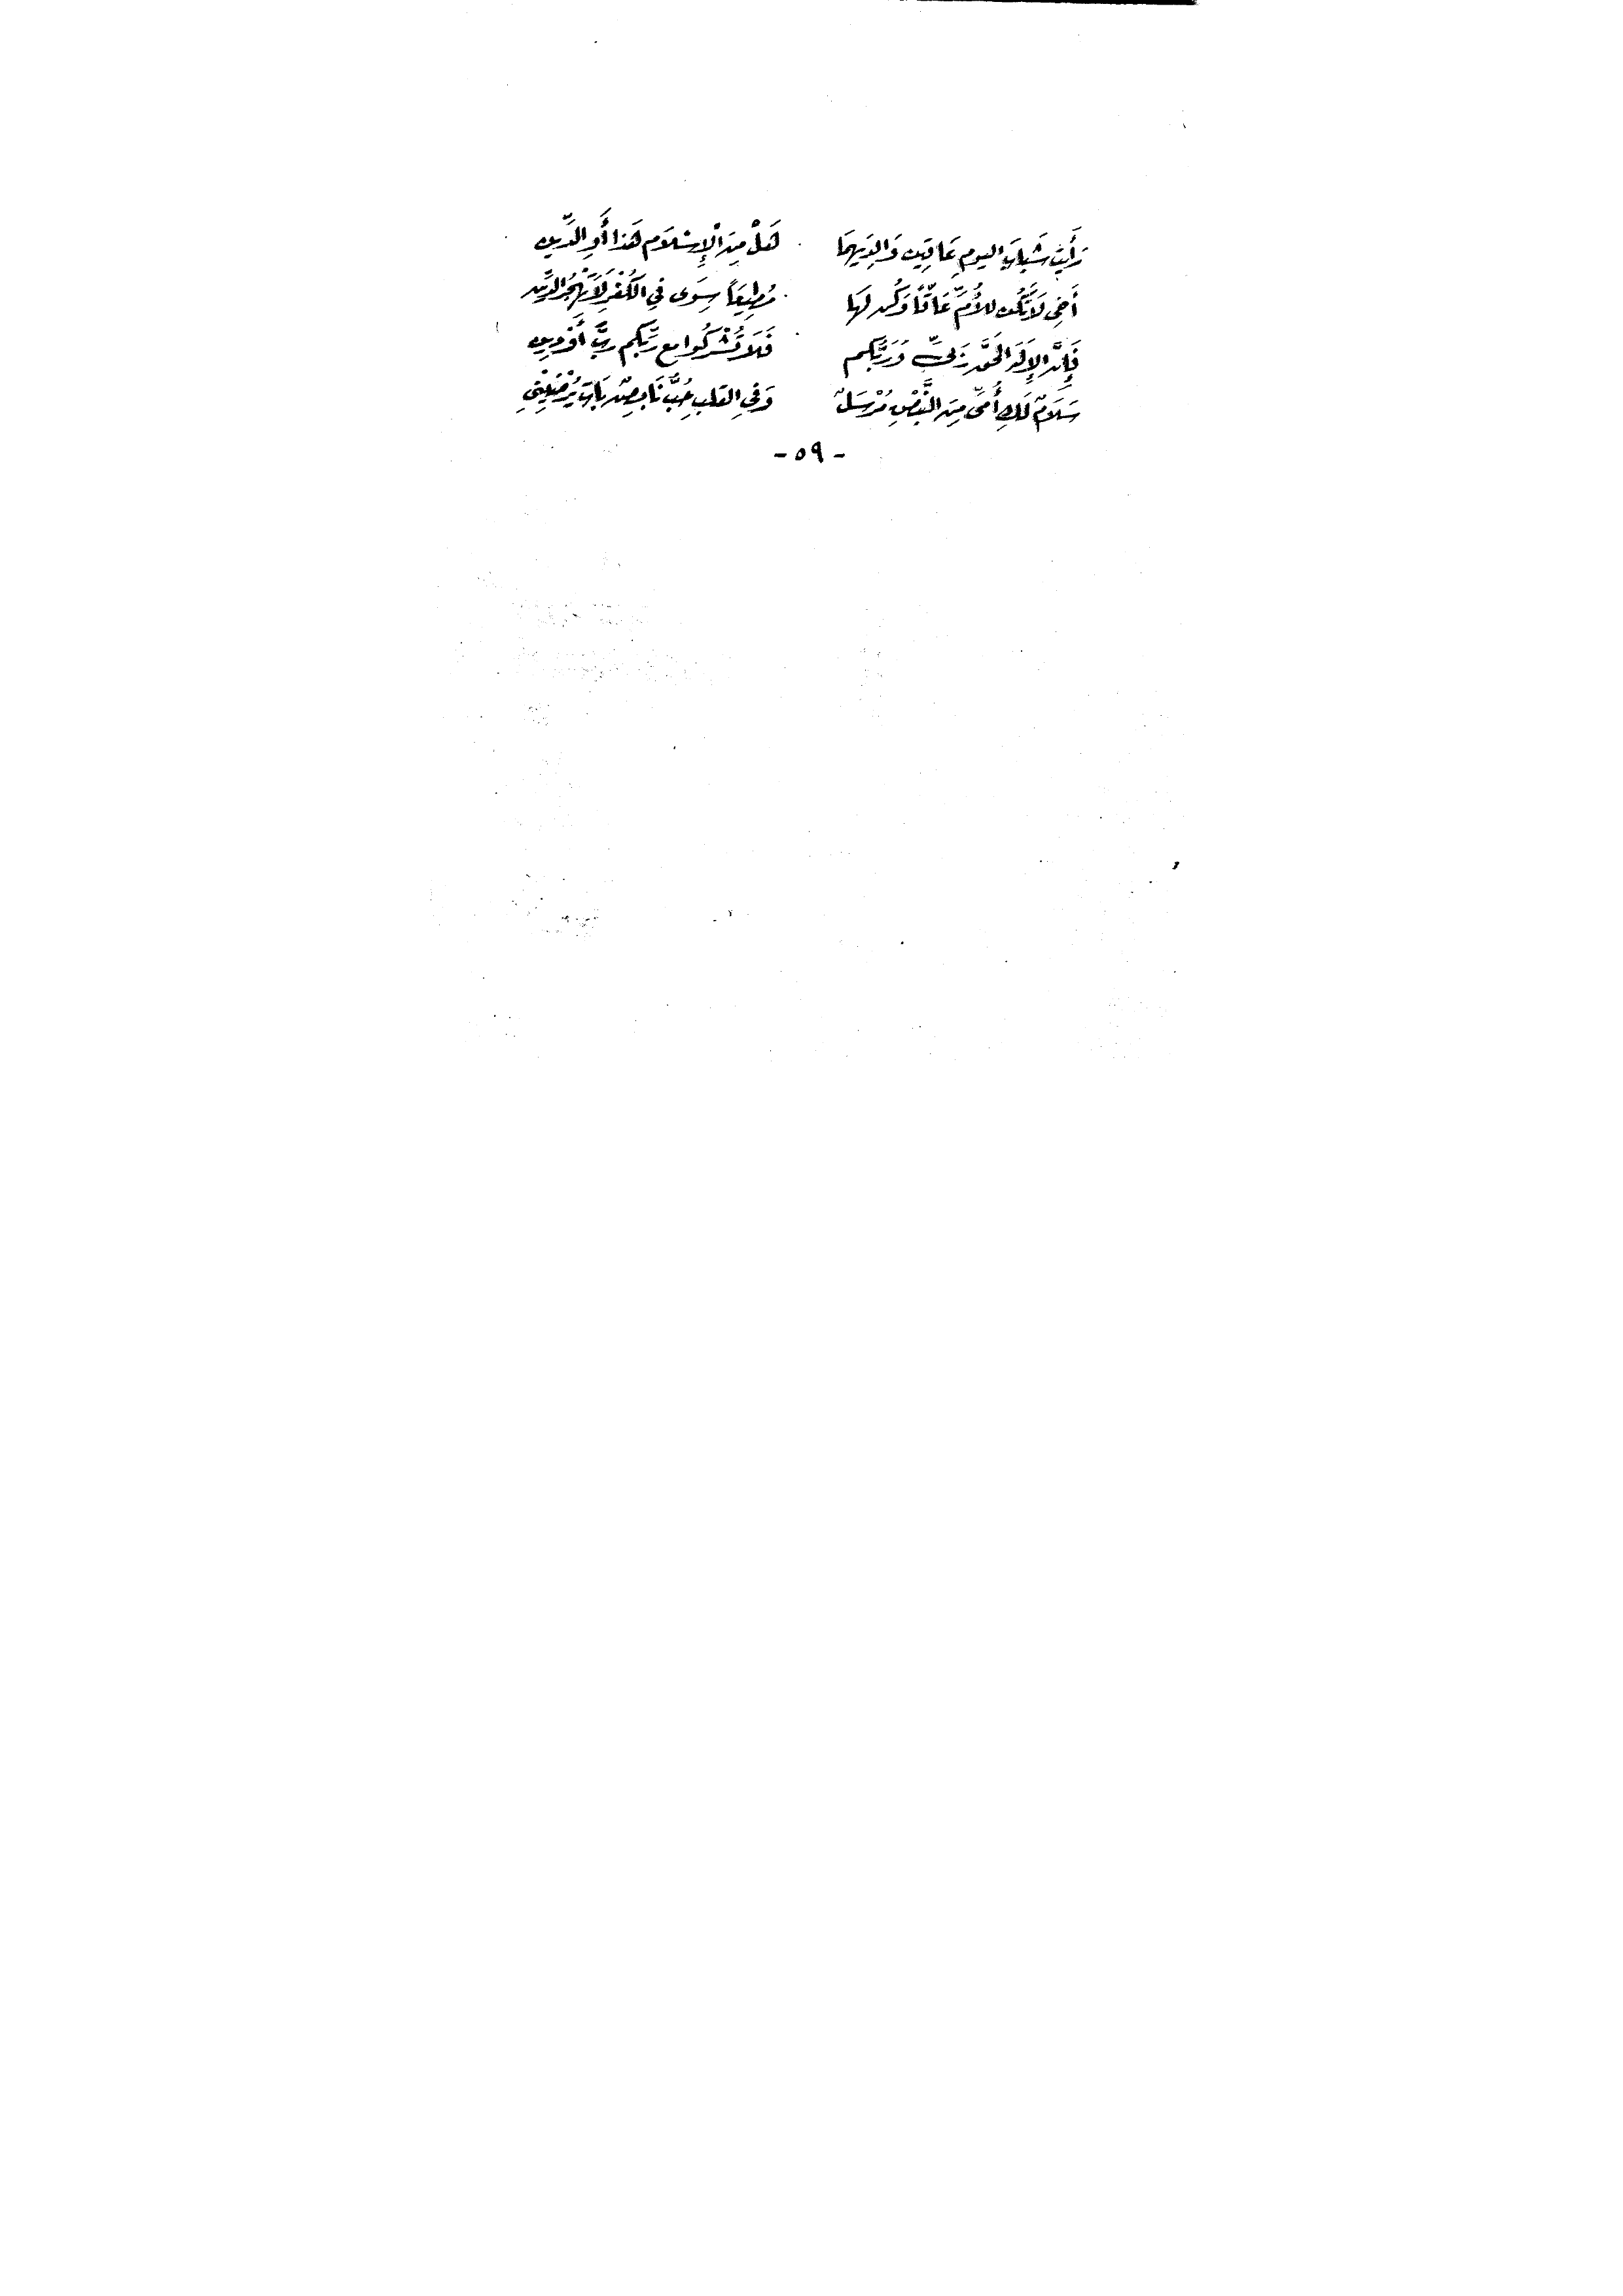 رَأَيْتُ شَبَابَ اليومِ عَاقِّين وَالِدَيهِمَا هَلْ مِنَ الْإِسْلَامِ هَذَا أَوِ الدِّينِ
أَخِي لَا تَكُن للأُمِّ عَاقًّا وَكُن لَهَا مُطِيعَاً سِوَى فِي الكُفْرِ لَا تَهْجُرِ الدِّينِ
فَإِنَّ الإِلَهَ الحَقَّ رَبِّي وَرَبُّكُم فَلَا تُشْرِكُوا مع رَبِّكُم رَبَّ
سَلَامٌ لَكِ أُمِّي مِنَ النَّبْضِ مُرْسَلٌ وَفِي القلبِ حُبٌّ نَابِضٌ بَاتَ يُرْضِينِي
- ٥٩ -